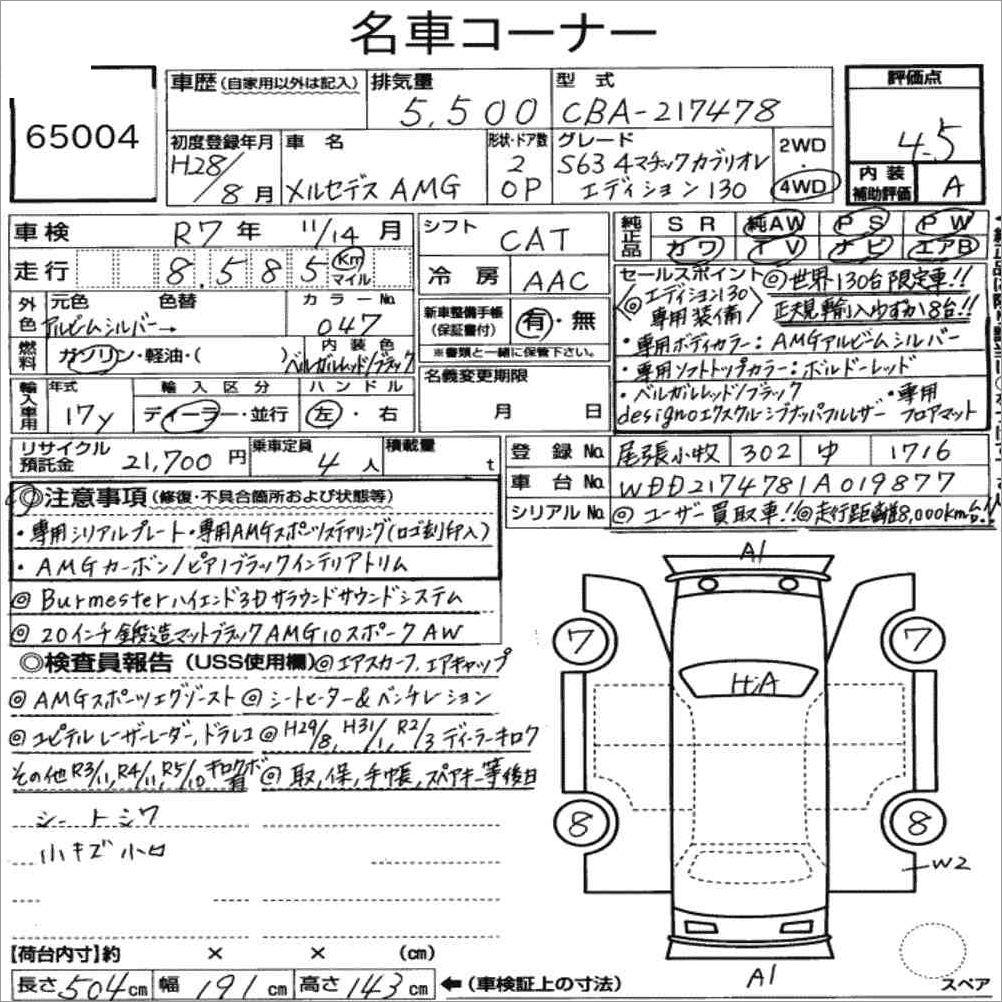 名車コーナー
65004
車歴 (自家用以外は記入) 排気量 5,500
型式 CBA-217478
評価点 4.5
初度登録年月 H28/8月
車名 メルセデス AMG
形状・ドア数 2 OP
グレード S63 4マチックカブリオレ
エディション130
2WD・4WD
内装補助評価 A
車検 R7年 11/14月
シフト CAT
純正品 SR 純AW PS PW
カワ TV ナビ エアB
走行 8,585 Km マイル
冷房 AAC
セールスポイント ◎世界130台限定車!!
〈◎エディション130専用装備〉 正規輸入わずか8台!!
外色 元色 色替 カラーNo.
アルビームシルバー→ 047
新車整備手帳(保証書付) 有・無
※書類と一緒に保管下さい。
・専用ボディカラー:AMGアルビームシルバー
燃料 ガソリン・軽油・( )
内装色 ベルガルレッド/ブラック
・専用ソフトトップカラー:ボルドーレッド
輸入車用 年式 17y
輸入区分 ディーラー・並行
ハンドル 左・右
名義変更期限 月 日
・ベルガルレッド/ブラック ・専用
designoエクスクルーシブナッパフルレザー フロアマット
リサイクル預託金 21,700円
乗車定員 4人
積載量 t
登録No. 尾張小牧 302 ゆ 1716
車台No. WDD2174781A019877
シリアルNo. ◎ユーザー買取車!!◎走行距離8,000km台!!
◎注意事項(修復・不具合箇所および状態等)
・専用シリアルプレート・専用AMGスポーツステアリング(ロゴ刻印入)
・AMGカーボン/ピアノブラックインテリアトリム
◎Burmesterハイエンド3Dサラウンドサウンドシステム
◎20インチ鍛造マットブラックAMG10スポークAW
◎検査員報告(USS使用欄)◎エアスカーフ,エアキャップ
◎AMGスポーツエグゾースト◎シートヒーター&ベンチレション
◎ユピテルレーザーレーダー,ドラレコ◎H29/8,H31/1,R2/3ディーラーキロク
その他R3/11,R4/11,R5/10キロクボ有 ◎取,保,手帳,スペアキー等後日
シートシワ
小キズ小凹
【荷台内寸】約 × × (cm)
長さ504cm 幅191cm 高さ143cm ←(車検証上の寸法)
A1
7 7
H.A
8 8
W2
A1
スペア